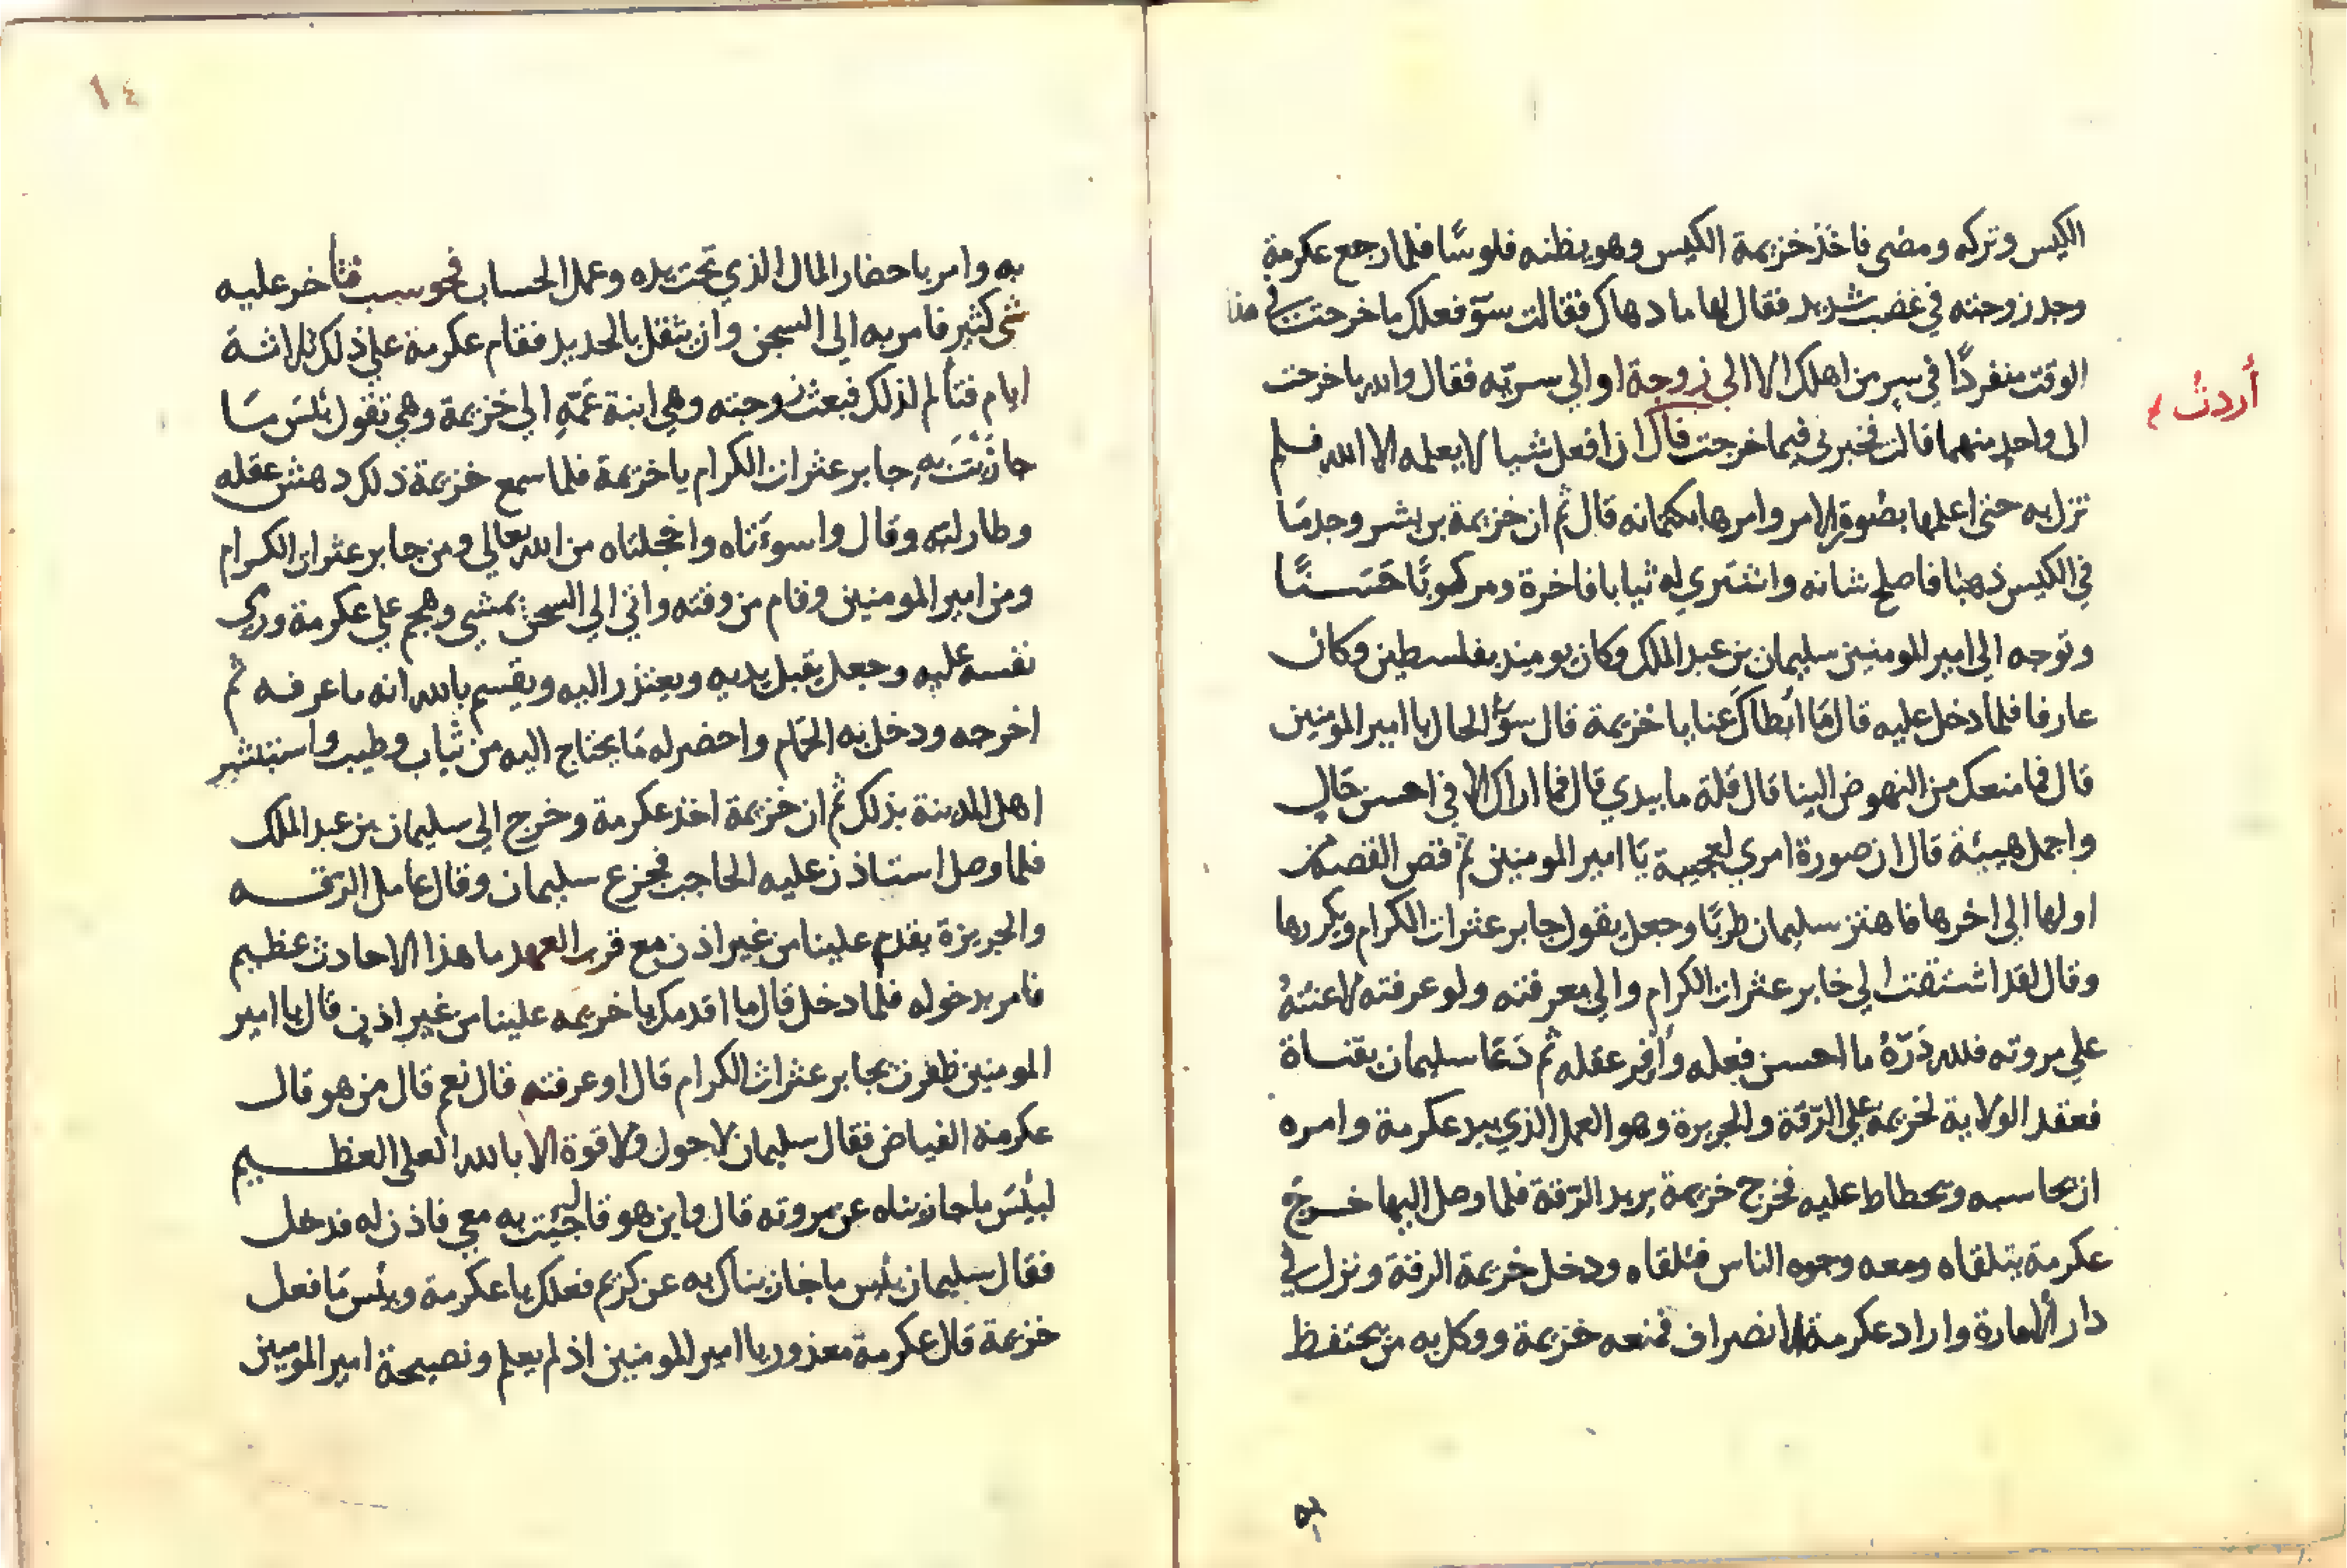 الكيس وتركه ومضى فاخذ خزيمة الكيس وهو يظنه فلوسًا فلما رجع عكرمة
وجد زوجته في غضب شديد فقال لها ما دهاك فقالت سوٓ فعلك ما خرجت في هذا
الوقت منفردًا في سر من اهلك الا الي زوجة او الي سريّه فقال والله ما خرجت
الى واحدٍ منهما قالت فخبرني فيما خرجت قال ان افعل شيا لا يعلمه الا الله فلم
أردتُ
تزل به حتى اعلمها بصُورة الامر وامرها بكتمانه قال ثم ان خزيمة بن بشر وجد مَا
في الكيس ذهبًا فاصلح شانه واشتري له ثيابا فاخرة ومركوبًا حَسَنًا
وتوجه الي امير المومنين سليمان بن عبد الملك وكان يوميذ بفلسطين وكان
عارفا فلما دخل عليه قال مَا ابْطاكَ عنا يا خزيمة قال سوٓء الحال يا امير المومنين
قال فما منعك من النهوض الينا قال قلة ما بيدي قال فما اراك الا في احسن حَال
واجمل هيبئة قال ان صورة امري لعجيبة يَا امير المومنين ثم قص القصة من
اولها الي اخرها فاهتز سليمان طربًا وجعل يقول جابر عثرات الكرام ويكررها
وقال لقد اشتقت الي خابر عثرات الكرام والي معرفته ولو عرفته لاعنتهُ
علي مروته فلله دَرّهُ ما احسن فعله وأوفر عقله ثم دَعَا سليمان بقناة
فعقد الولاية لخزيمة علي الرّقة والجزيرة وهو العمل الذي بيد عكرمة وامره
ان يحاسبه ويحطاط عليه فخرج خزيمة يريد الرّقة فلما وصل اليها خرج
عكرمة يتلقاه ومعه وجوه الناس فتلقاه ودخل خزيمة الرقة ونزل في
دار ألامارة واراد عكرمة الانصراف فمنعه خزيمة ووكل به من يحتفظ
به
١٤
به وامر باحضار المال الذي تحت يده وعمل الحساب فحوسب فتأخر عليه
شي كثير فامر به الي السجن وان يثقل بالحديد فقام عكرمة علي ذلك ثلاثة
ايام فتألم لذلك فبعثت زوجته وهي ابنة عَمّهِ الي خزيمة وهي تقول بئسَ مَا
جازيْتَ به جابر عثرات الكرام يا خزيمة فلما سمع خزيمة ذلك دهش عقله
وطار لبّه وقال واسوءَتاه واخجلتاه من الله تعالي ومن جابر عثرات الكرام
ومن امير المومنين وقام من وقته واتي الي السجن يمشي وهجم علي عكرمة ورمي
نفسه عليه وجعل يقبل يديه ويعتذر اليه ويقسم بالله انه ما عرفه ثم
اخرجه ودخل به الحمّام واحضر له مَا يحتاج اليه من ثياب وطيب واستبشر
اهل المدينة بذلك ثم ان خزيمة اخذ عكرمة وخرج الي سليمان بن عبد الملك
فلما وصل استاذن عليه الحاجب فجزع سليمان وقال عامل الرقه
والجزيزة يقدم علينا من غير اذن مع قرب العهد ما هذا الا حادث عظيم
فامر بدخوله فلما دخل قال ما اقدمك يا خزيمه علينا من غير اذن قال يا امير
المومنين ظفرت بجابر عثرات الكرام قال او عرفته قال نعم قال من هو قال
عكرمة الفياض فقال سليمان لا حول ولا قوة الا بالله العلي العظيم
لبيئسَ ما جازيناه عن مروته قال واين هو قال جيئت به معي فاذن له فدخل
فقال سليمان بئس ما جازيناك به عن كريم فعلك يا عكرمة وبئس مَا فعل
خزيمة قال عكرمة معذور يا امير المومنين اذ لم يعلم ونصيحة امير المومنين